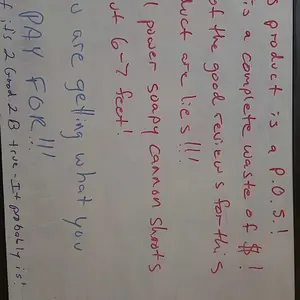 s product is a P.O.S.!
is a complete waste of $!
of the good reviews for this
duct are lies!!!
l power soapy cannon shoots
ut 6-7 feet!
u are getting what you
PAY FOR!!!
f it's 2 Good 2 B true-It probably is!